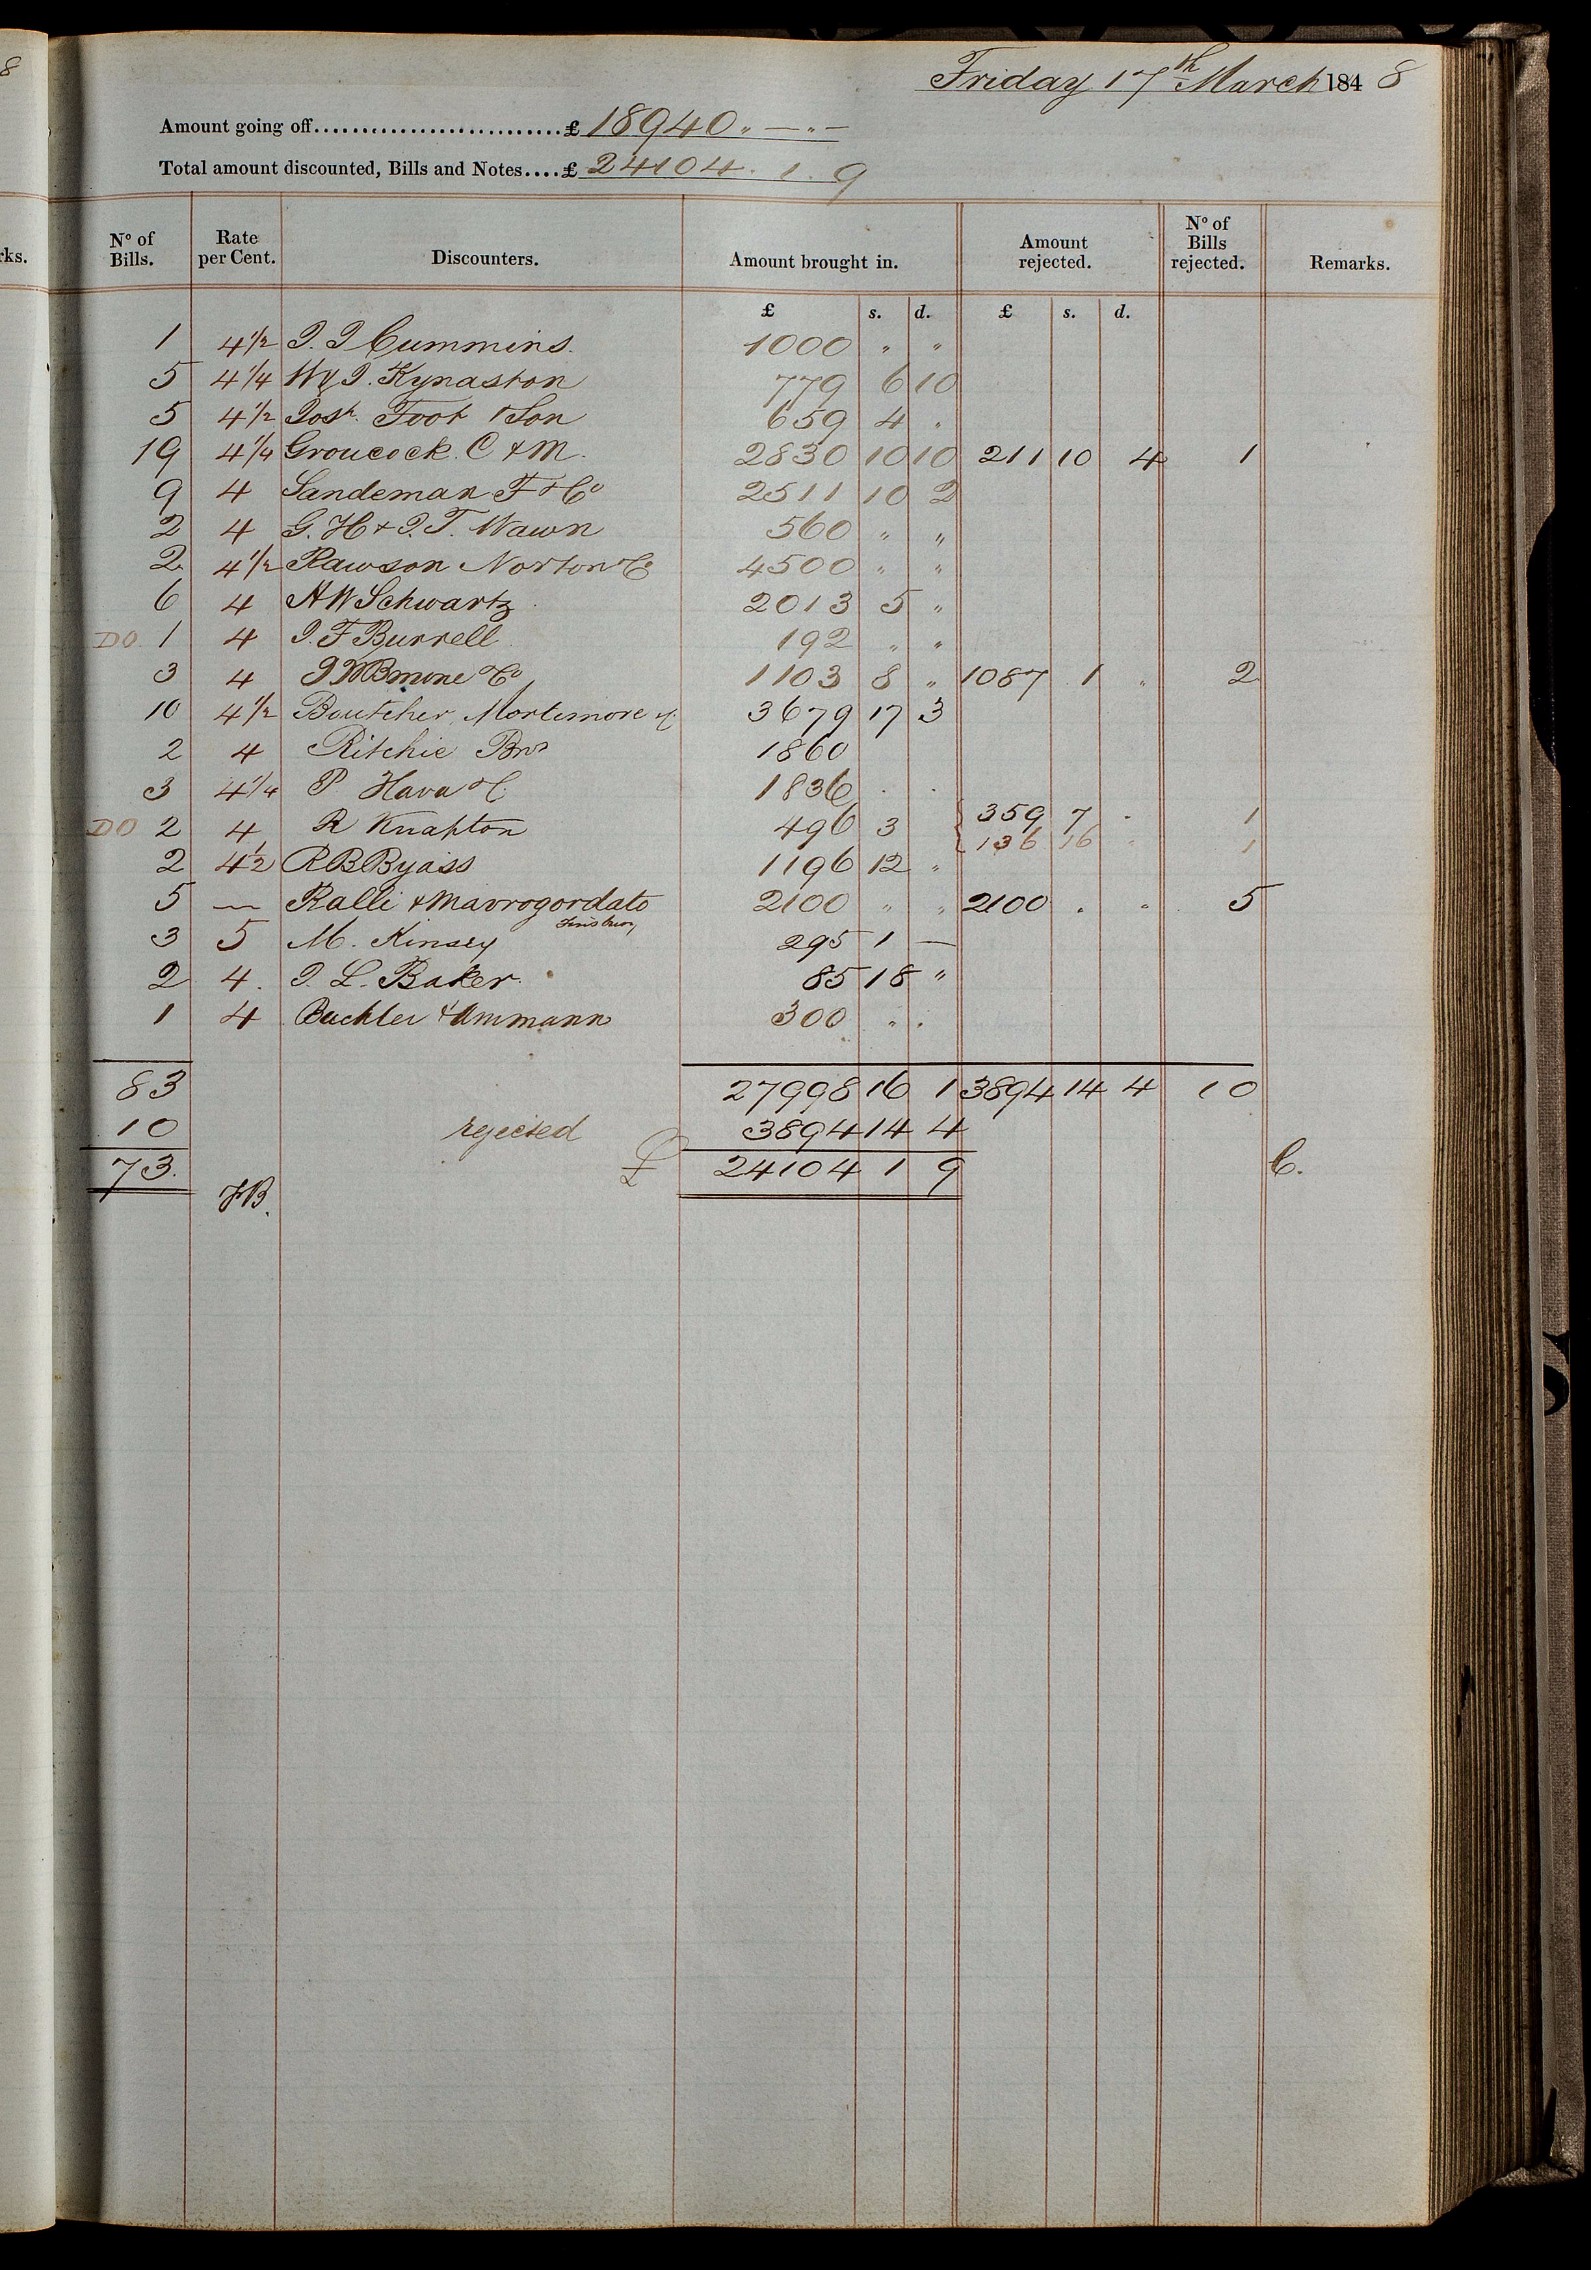 8
Friday 17th March 1848
Amount going off........................... £ 18940 „ — „ —
Total amount discounted, Bills and Notes.... £ 24104 . 1 . 9
rks. Nº of Bills. Rate per Cent. Discounters. Amount brought in. Amount rejected. Nº of Bills rejected. Remarks.
£ s. d. £ s. d.
1 4 1/2 J. J Cummins. 1000 „ „
5 4 1/4 W & J. Kynaston 779 6 10
5 4 1/2 Josh. Foot & Son 659 4 „
19 4 1/4 Groucock. C & M. 2830 10 10 211 10 4 1
9 4 Sandeman F & Co 2511 10 2
2 4 G. H & J. T. Wawn 560 „ „
2 4 1/2 Rawson Norton & Co 4500 „ „
6 4 A W Schwartz 2013 5 „
DO 1 4 J. F Burrell 192 „ „
3 4 & Co 1103 8 „ 1087 1 „ 2
10 4 1/2 Boutcher, Mortimore & C. 3679 17 3
2 4 Ritchie Bros 1860
3 4 1/4 P Hava & C. 1836 . .
DO 2 4 R Knapton 496 3 { 359 7 . 1
{ 136 16 „ 1
2 4 1/2 R B Byass 1196 12 „
5 — Ralli & Mavrogordato 2100 „ „ 2100 . „ 5
3 5 M. Kinsey Finsbury 295 1 —
2 4. J. L. Baker. 85 18 „
1 4 Buchler & Ammann 300 „ .
83 27998 16 1 3894 14 4 10
10 rejected 3894 14 4
73. £ 24104 1 9 C.
JB.